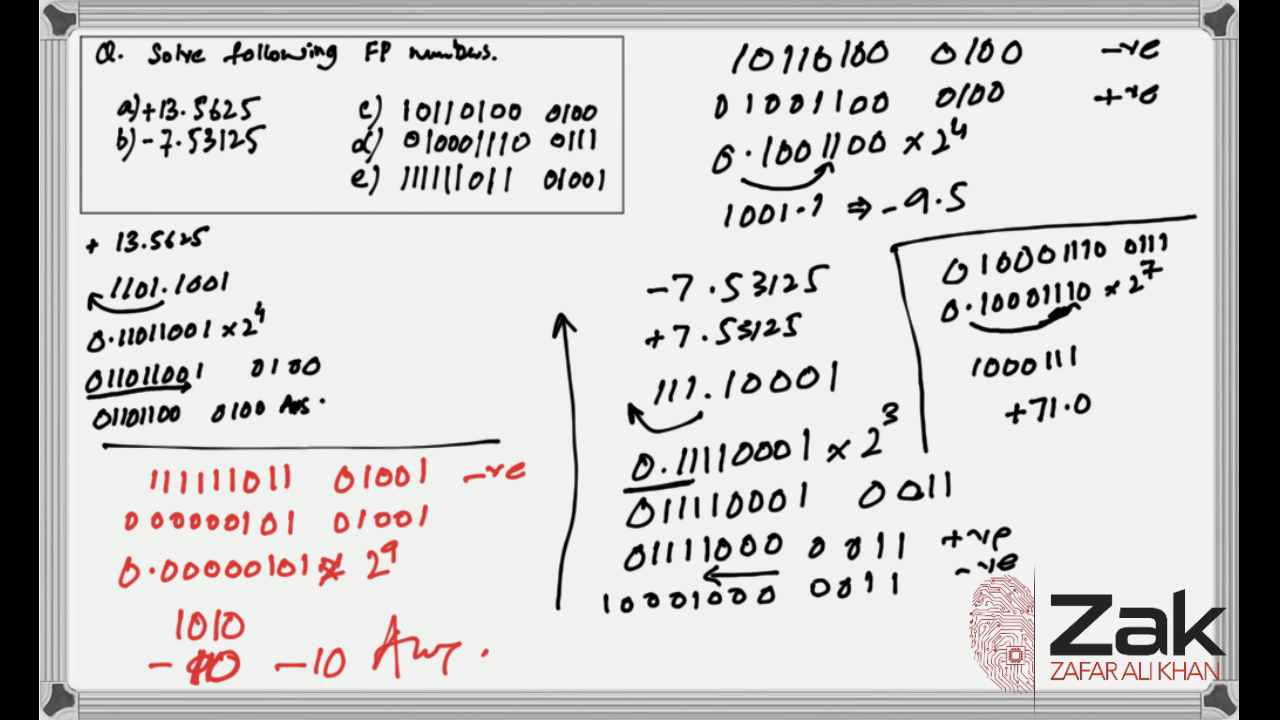 Q. Solve following FP numbers.
a) +13.5625
b) -7.53125
c) 10110100 0100
d) 010001110 0111
e) 111111011 01001
+ 13.5625
1101.1001
0.11011001 x 2^4
011011001 0100
01101100 0100 Ans.
111111011 01001 -ve
000000101 01001
0.00000101 x 2^9
1010
-10 -10 Ans.
10110100 0100 -ve
01001100 0100 +ve
0.1001100 x 2^4
1001.1 ⇒ -9.5
-7.53125
+7.53125
111.10001
0.11110001 x 2^3
011110001 0011
01111000 0011 +ve
10001000 0011 -ve
010001110 0111
0.10001110 x 2^7
1000111
+71.0
Zak
ZAFAR ALI KHAN